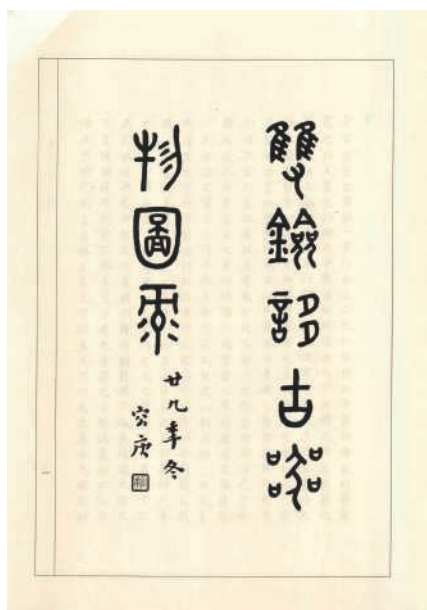 雙劍誃古器
物圖录
廿九年冬
容庚